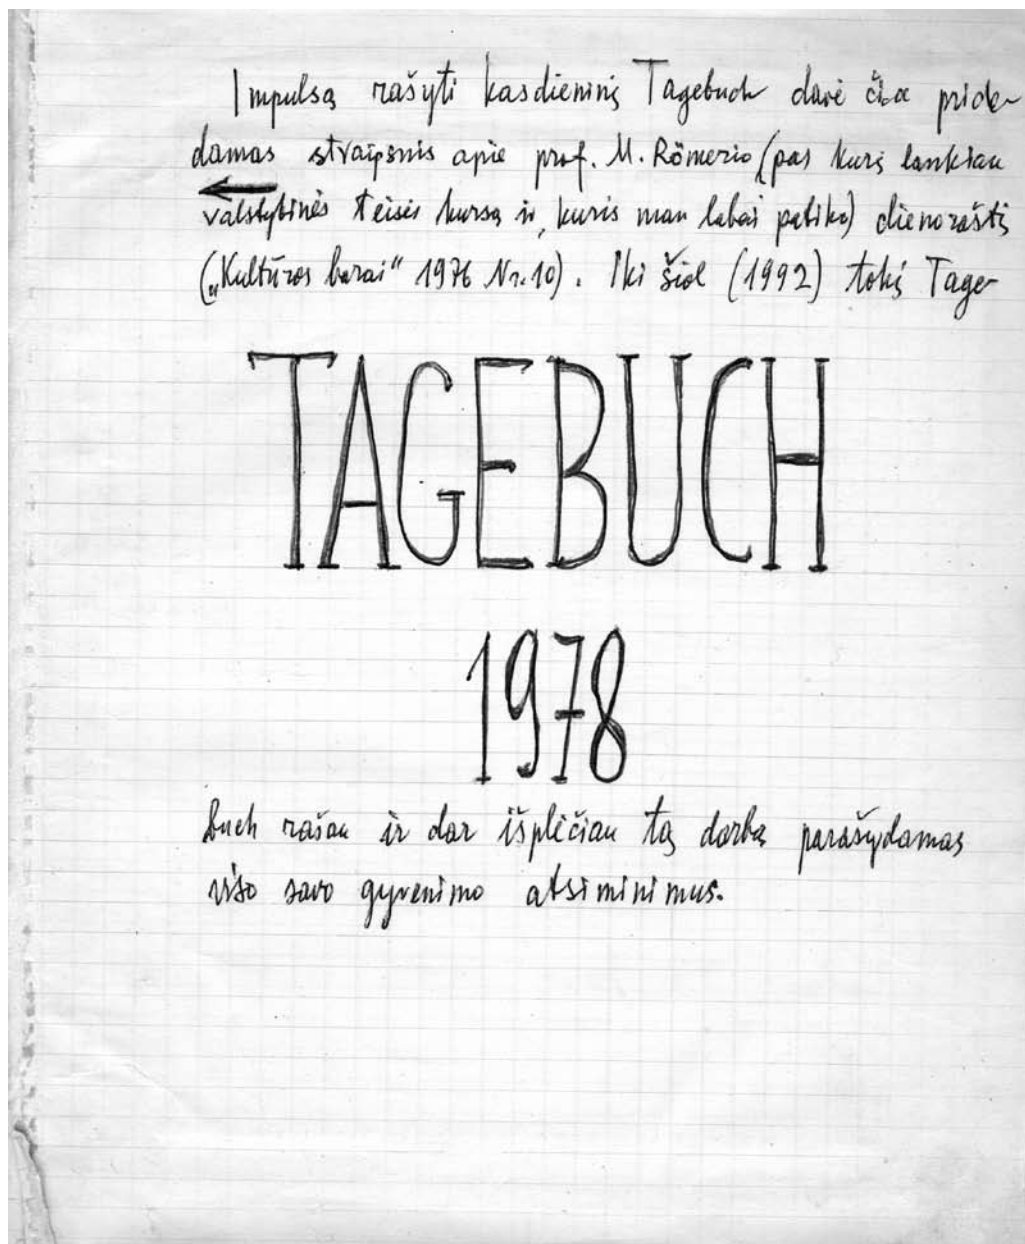 Impulsą rašyti kasdieninį Tagebuch davė čia pride-
damas straipsnis apie prof. M. Römerio (pas kurį lankiau
valstybinės teisės kursą ir kuris man labai patiko) dienoraštį
(„Kultūros barai“ 1976 Nr. 10). Iki šiol (1992) tokį Tage-
TAGEBUCH
1978
buch rašau ir dar išplečiau tą darbą parašydamas
viso savo gyvenimo atsiminimus.